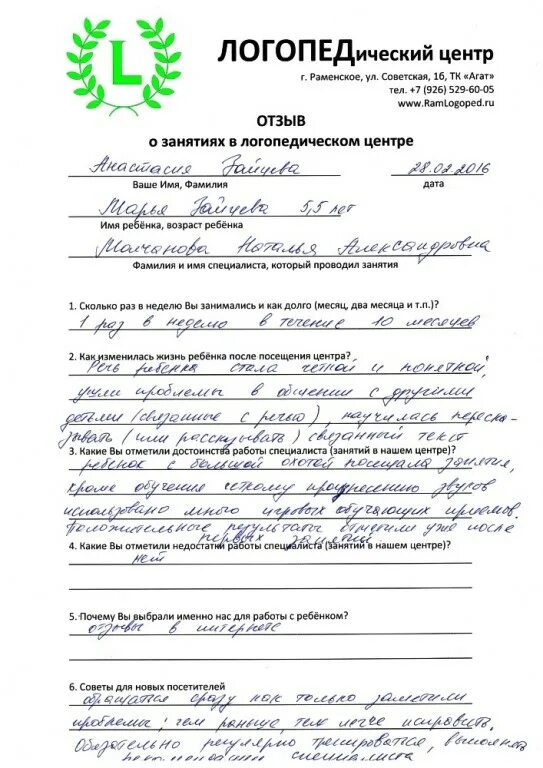 L
ЛОГОПЕДический центр
г. Раменское, ул. Советская, 16, ТК «Агат»
тел. +7 (926) 529-60-05
www.RamLogoped.ru
ОТЗЫВ
о занятиях в логопедическом центре
Анастасия Зайцева 28.02.2016
Ваше Имя, Фамилия дата
Марья Зайцева 5,5 лет
Имя ребёнка, возраст ребёнка
Молчанова Наталья Александровна
Фамилия и имя специалиста, который проводил занятия
1. Сколько раз в неделю Вы занимались и как долго (месяц, два месяца и т.п.)?
1 раз в неделю в течение 10 месяцев
2. Как изменилась жизнь ребёнка после посещения центра?
Речь ребенка стала четкой и понятной,
ушли проблемы в общении с другими
детьми (связанные с речью), научилась переска-
зывать (или рассказывать) связанный текст
3. Какие Вы отметили достоинства работы специалиста (занятий в нашем центре)?
ребенок с большой охотой посещала занятия,
кроме обучения четкому произнесению звуков
использовано много игровых обучающих приемов.
Положительные результаты отметили уже после
первых занятий
4. Какие Вы отметили недостатки работы специалиста (занятий в нашем центре)?
нет
5. Почему Вы выбрали именно нас для работы с ребёнком?
отзывы в интернете
6. Советы для новых посетителей
обращаться сразу как только заметили
проблемы; чем раньше, тем легче исправить.
Обязательно регулярно тренироваться, выполнять
рекомендации специалиста